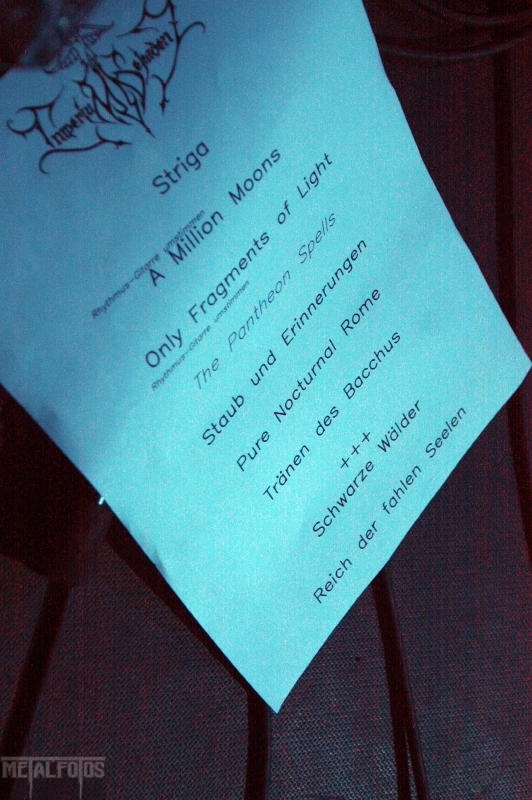 Imperium Dekadenz
Striga
Rhythmus-Gitarre umstimmen
A Million Moons
Only Fragments of Light
Rhythmus-Gitarre umstimmen
The Pantheon Spells
Staub und Erinnerungen
Pure Nocturnal Rome
Tränen des Bacchus
+++
Schwarze Wälder
Reich der fahlen Seelen
METALFOTOS